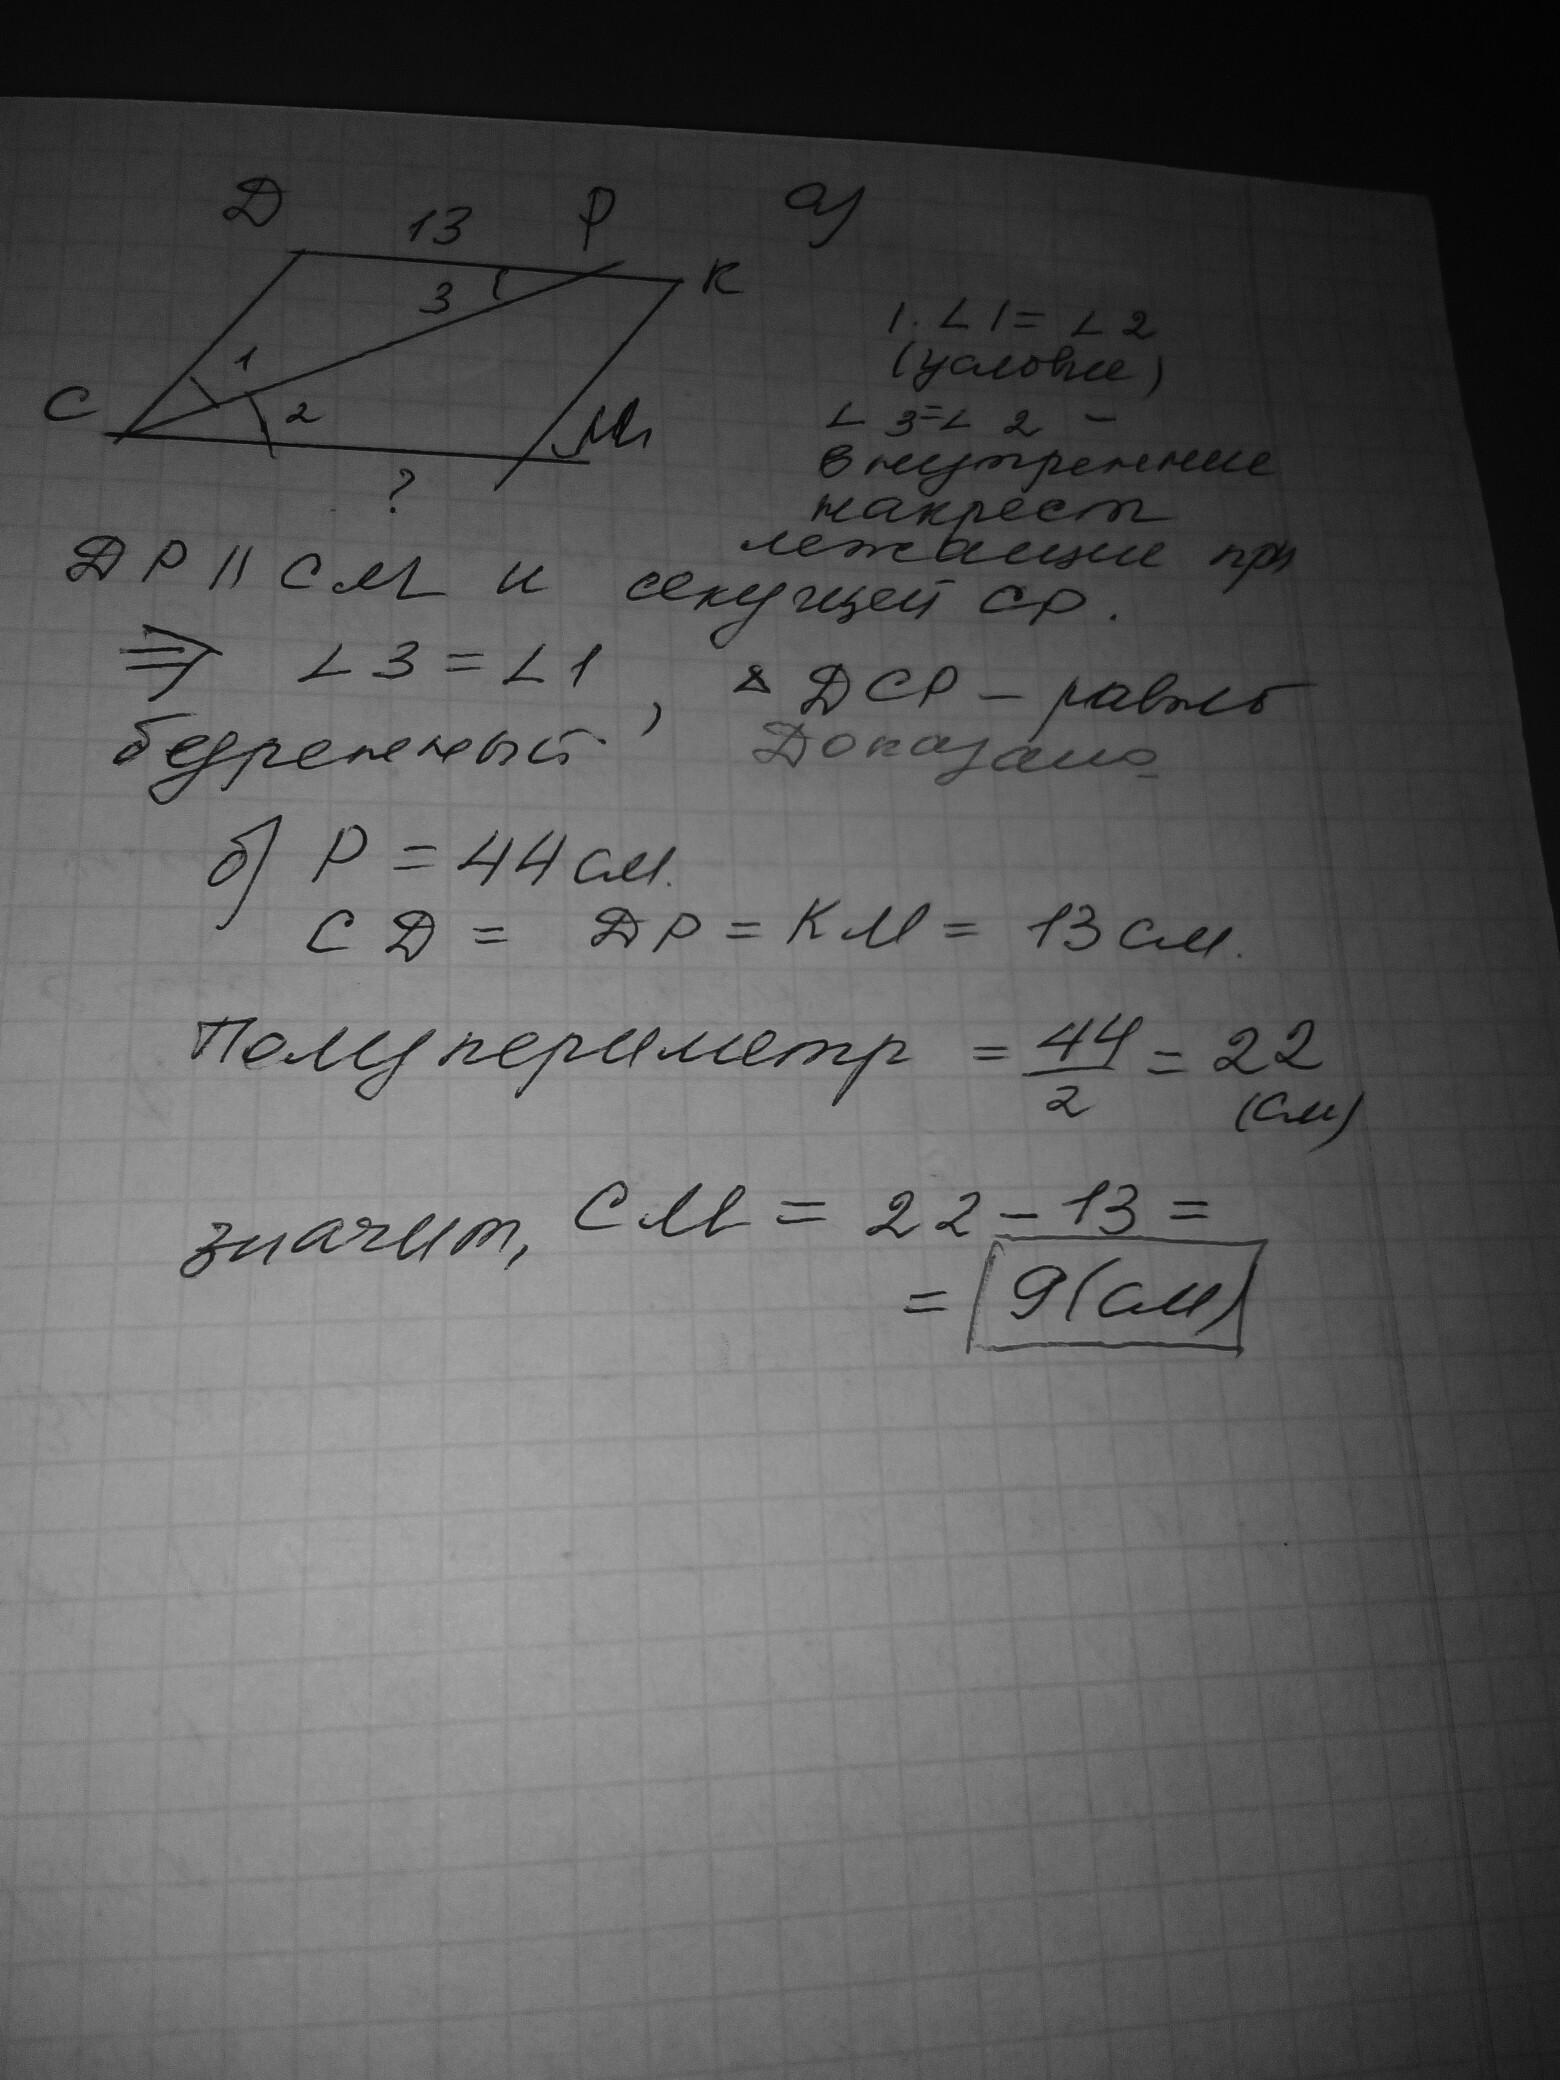 Д 13 Р а)
3 К
1
С 2 М
?
1. ∠1 = ∠2
(условие)
∠3 = ∠2 –
внутренние
накрест
лежащие при
ДР || СМ и секущей СР.
⇒ ∠3 = ∠1, △ ДСР – равно
бедренный Доказано
б) Р = 44 см.
СД = ДР = КМ = 13 см.
Полупериметр = 44/2 = 22
(см)
значит, СМ = 22 – 13 =
= 9 (см)